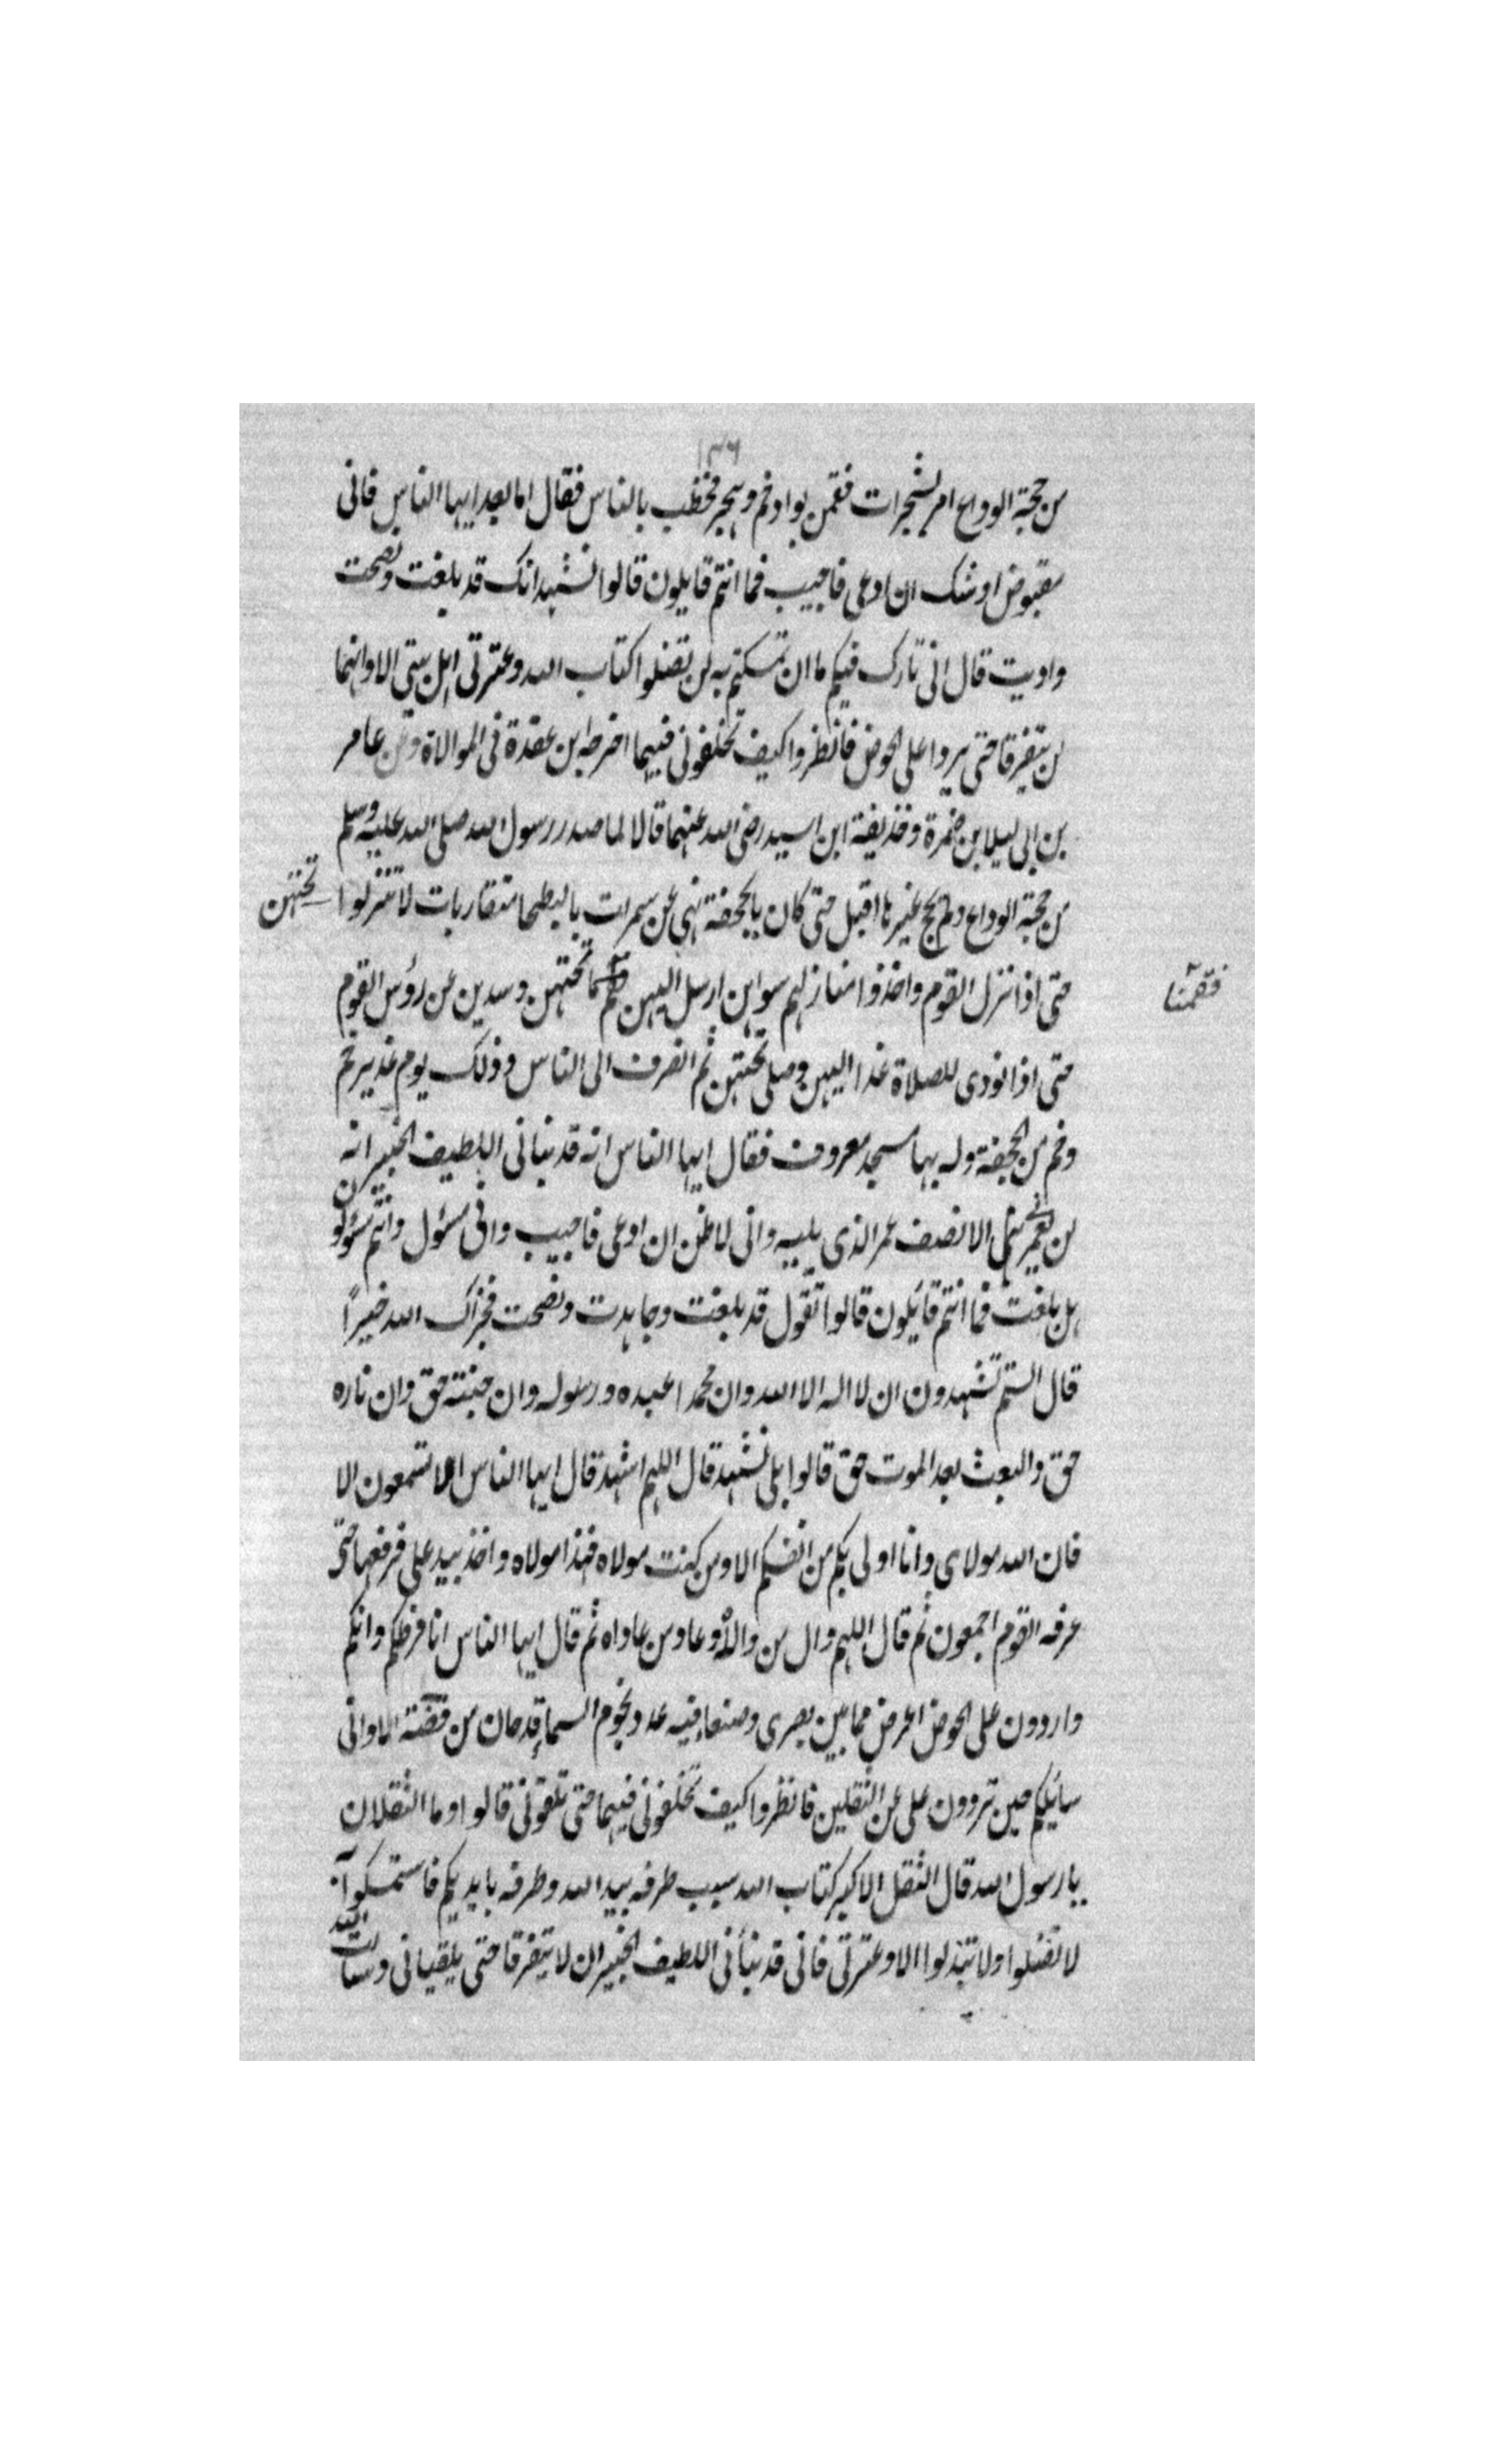 ١٣٦
من حجة الوداع امر بشجرات فقمن بوادخم وهجر فخطب بالناس فقال اما بعد ايها الناس فانى
مقبوض اوشك ان ادعى فاجيب فما انتم قايلون قالوا نشهد انك قد بلغت ونصحت
واديت قال انى تارك فيكم ما ان تمسكتم به لن تضلوا كتاب الله وعترتى اهل بيتى الا وانهما
لن يتفرقا حتى يردا على الحوض فانظروا كيف تخلفونى فيهما اخرجه ابن عقدة فى الموالاة وعن عامر
بن ابى ليلا بن ضمرة وحذيفة ابن اسيد رضى الله عنهما قالا لما صدر رسول الله صلى الله عليه وسلم
من حجة الوداع ولم يحج غيرها اقبل حتى كان بالجحفة نهى عن سمرات بالبطحا متقاربات لا تنزلوا تحتهن
حتى اذا نزل القوم واخذوا منازلهم سواهن ارسل اليهن فقم ما تحتهن وسدين عن رؤس القوم
فقممنا
حتى اذا نودى للصلاة غدا اليهن وصلى تحتهن ثم انصرف الى الناس وذلك يوم غدير خم
وخم من الجحفة وله بها مسجد معروف فقال ايها الناس انه قد نبانى اللطيف الخبير انه
لن يعمر نبى الا نصف عمر الذى يليه وانى لاظن ان ادعى فاجيب وانى مسئول وانتم مسؤلون
هل بلغت فما انتم قائلون قالوا نقول قد بلغت وجاهدت ونصحت فجزاك الله خيرًا
قال الستم تشهدون ان لا اله الا الله وان محمدا عبده ورسوله وان جنته حق وان ناره
حق والبعث بعد الموت حق قالوا بلى نشهد قال اللهم اشهد قال ايها الناس الا تسمعون الا
فان الله مولاى وانا اولى بكم من انفسكم الا ومن كنت مولاه فهذا مولاه واخذ بيد على فرفعها حتى
عرفه القوم اجمعون ثم قال اللهم وال من والاه وعاد من عاداه ثم قال ايها الناس انا فرطكم وانكم
واردون على الحوض اعرض مما بين بصرى وصنعاء فيه عدد نجوم السماء قدحان من فضة الا وانى
سائلكم حين تردون على عن الثقلين فانظروا كيف تخلفونى فيهما حتى تلقونى قالوا وما الثقلان
يا رسول الله قال الثقل الاكبر كتاب الله سبب طرفه بيد الله وطرفه بايديكم فاستمسكوا به
لا تضلوا ولا تبدلوا الا وعترتى فانى قد نبأنى اللطيف الخبير ان لا يتفرقا حتى يلقيانى وسالت الله